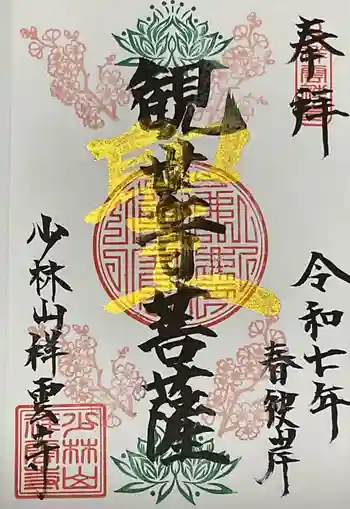 奉拝
令和七年
春彼岸
聖
観世音菩薩
少林山祥雲寺
少林山